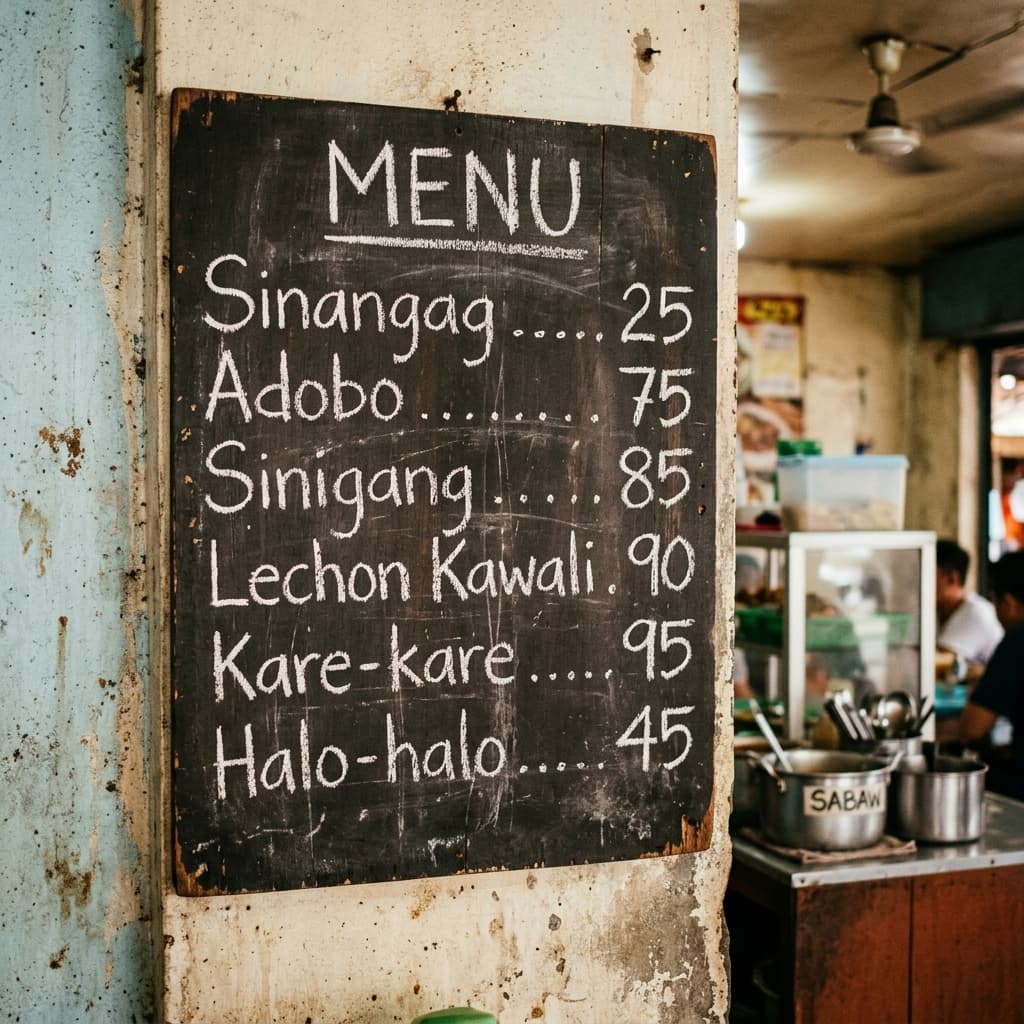 MENU
Sinangag ..... 25
Adobo ........ 75
Sinigang ..... 85
Lechon Kawali . 90
Kare-kare ..... 95
Halo-halo ..... 45
SABAW